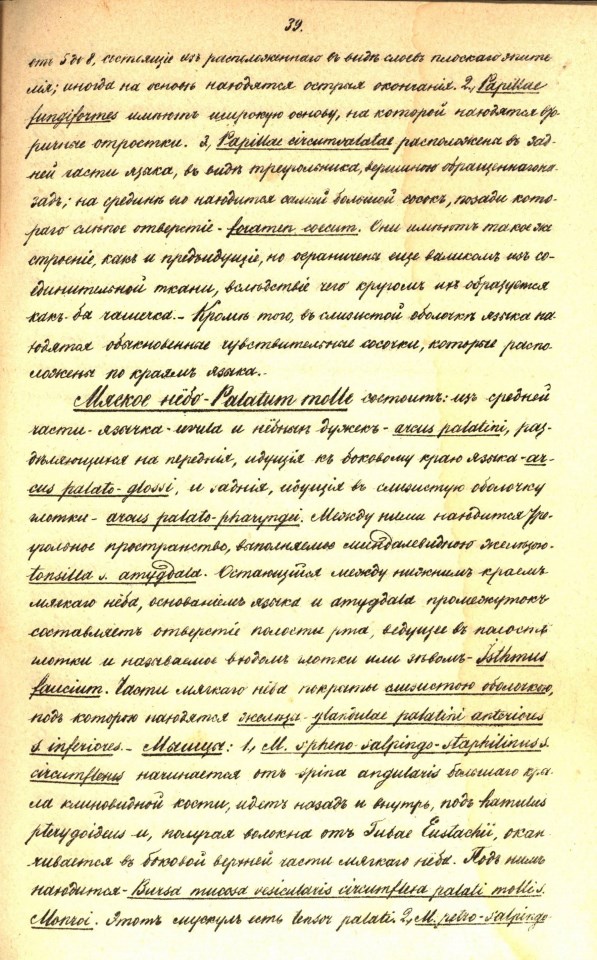 39.
отъ 5 до 8, состоящіе изъ расположеннаго въ видѣ слоевъ плоскаго эпите
лія; иногда на основѣ находятся острыя окончанія. 2, Papillae
fungiformes имѣютъ широкую основу, на которой находятся вто-
ричные отростки. 3, Papillae circumvalatae расположена въ зад-
ней части языка, въ видѣ треугольника, вершиною обращеннаго на-
задъ; на срединѣ его находится самый большой сосокъ, позади кото-
раго слѣпое отверстіе - foramen coecum. Они имѣютъ такое же
строеніе, какъ и предъидущіе, но ограничены еще валикомъ изъ со-
единительной ткани, вслѣдствіе чего кругомъ ихъ образуется
какъ-бы чашечка. - Кромѣ того, въ слизистой оболочкѣ языка на-
ходятся обыкновенные чувствительные сосочки, которые распо-
ложены по краямъ языка. -
Мягкое нёбо - Palatum molle состоитъ: изъ средней
части - язычка - uvula и нёбныхъ дужекъ - arcus palatini, раз-
дѣляющихся на переднія, идущія къ боковому краю языка - ar-
cus palato-glossi, и заднія, идущія въ слизистую оболочку
глотки - arcus palato-pharyngei. Между ними находится тре-
угольное пространство, выполняемое миндалевидною железою -
tonsilla s. amygdala. Остающійся между нижнимъ краемъ
мягкаго нёба, основаніемъ языка и amygdala промежутокъ
составляетъ отверстіе полости рта, ведущее въ полость
глотки и называемое входомъ глотки или зѣвомъ - Isthmus
faucium. Части мягкаго нёба покрыты слизистою оболочкою,
подъ которою находятся железы - glandulae palatini anterioues
s inferiores. - Мышцы: 1, M. spheno-salpingo-staphilinus s.
circumflexus начинается отъ spina angularis большаго кры-
ла клиновидной кости, идетъ назадъ и внутрь, подъ hamulus
pterygoideus-и, получая волокна отъ Tubae Eustachii, окан-
чивается въ боковой верхней части мягкаго нёба. Подъ нимъ
находится - Bursa mucosa vesicularis circumflexa palati mollis s.
Monroi. Этотъ мускулъ есть tensor palati. 2, M. petro-salpingo